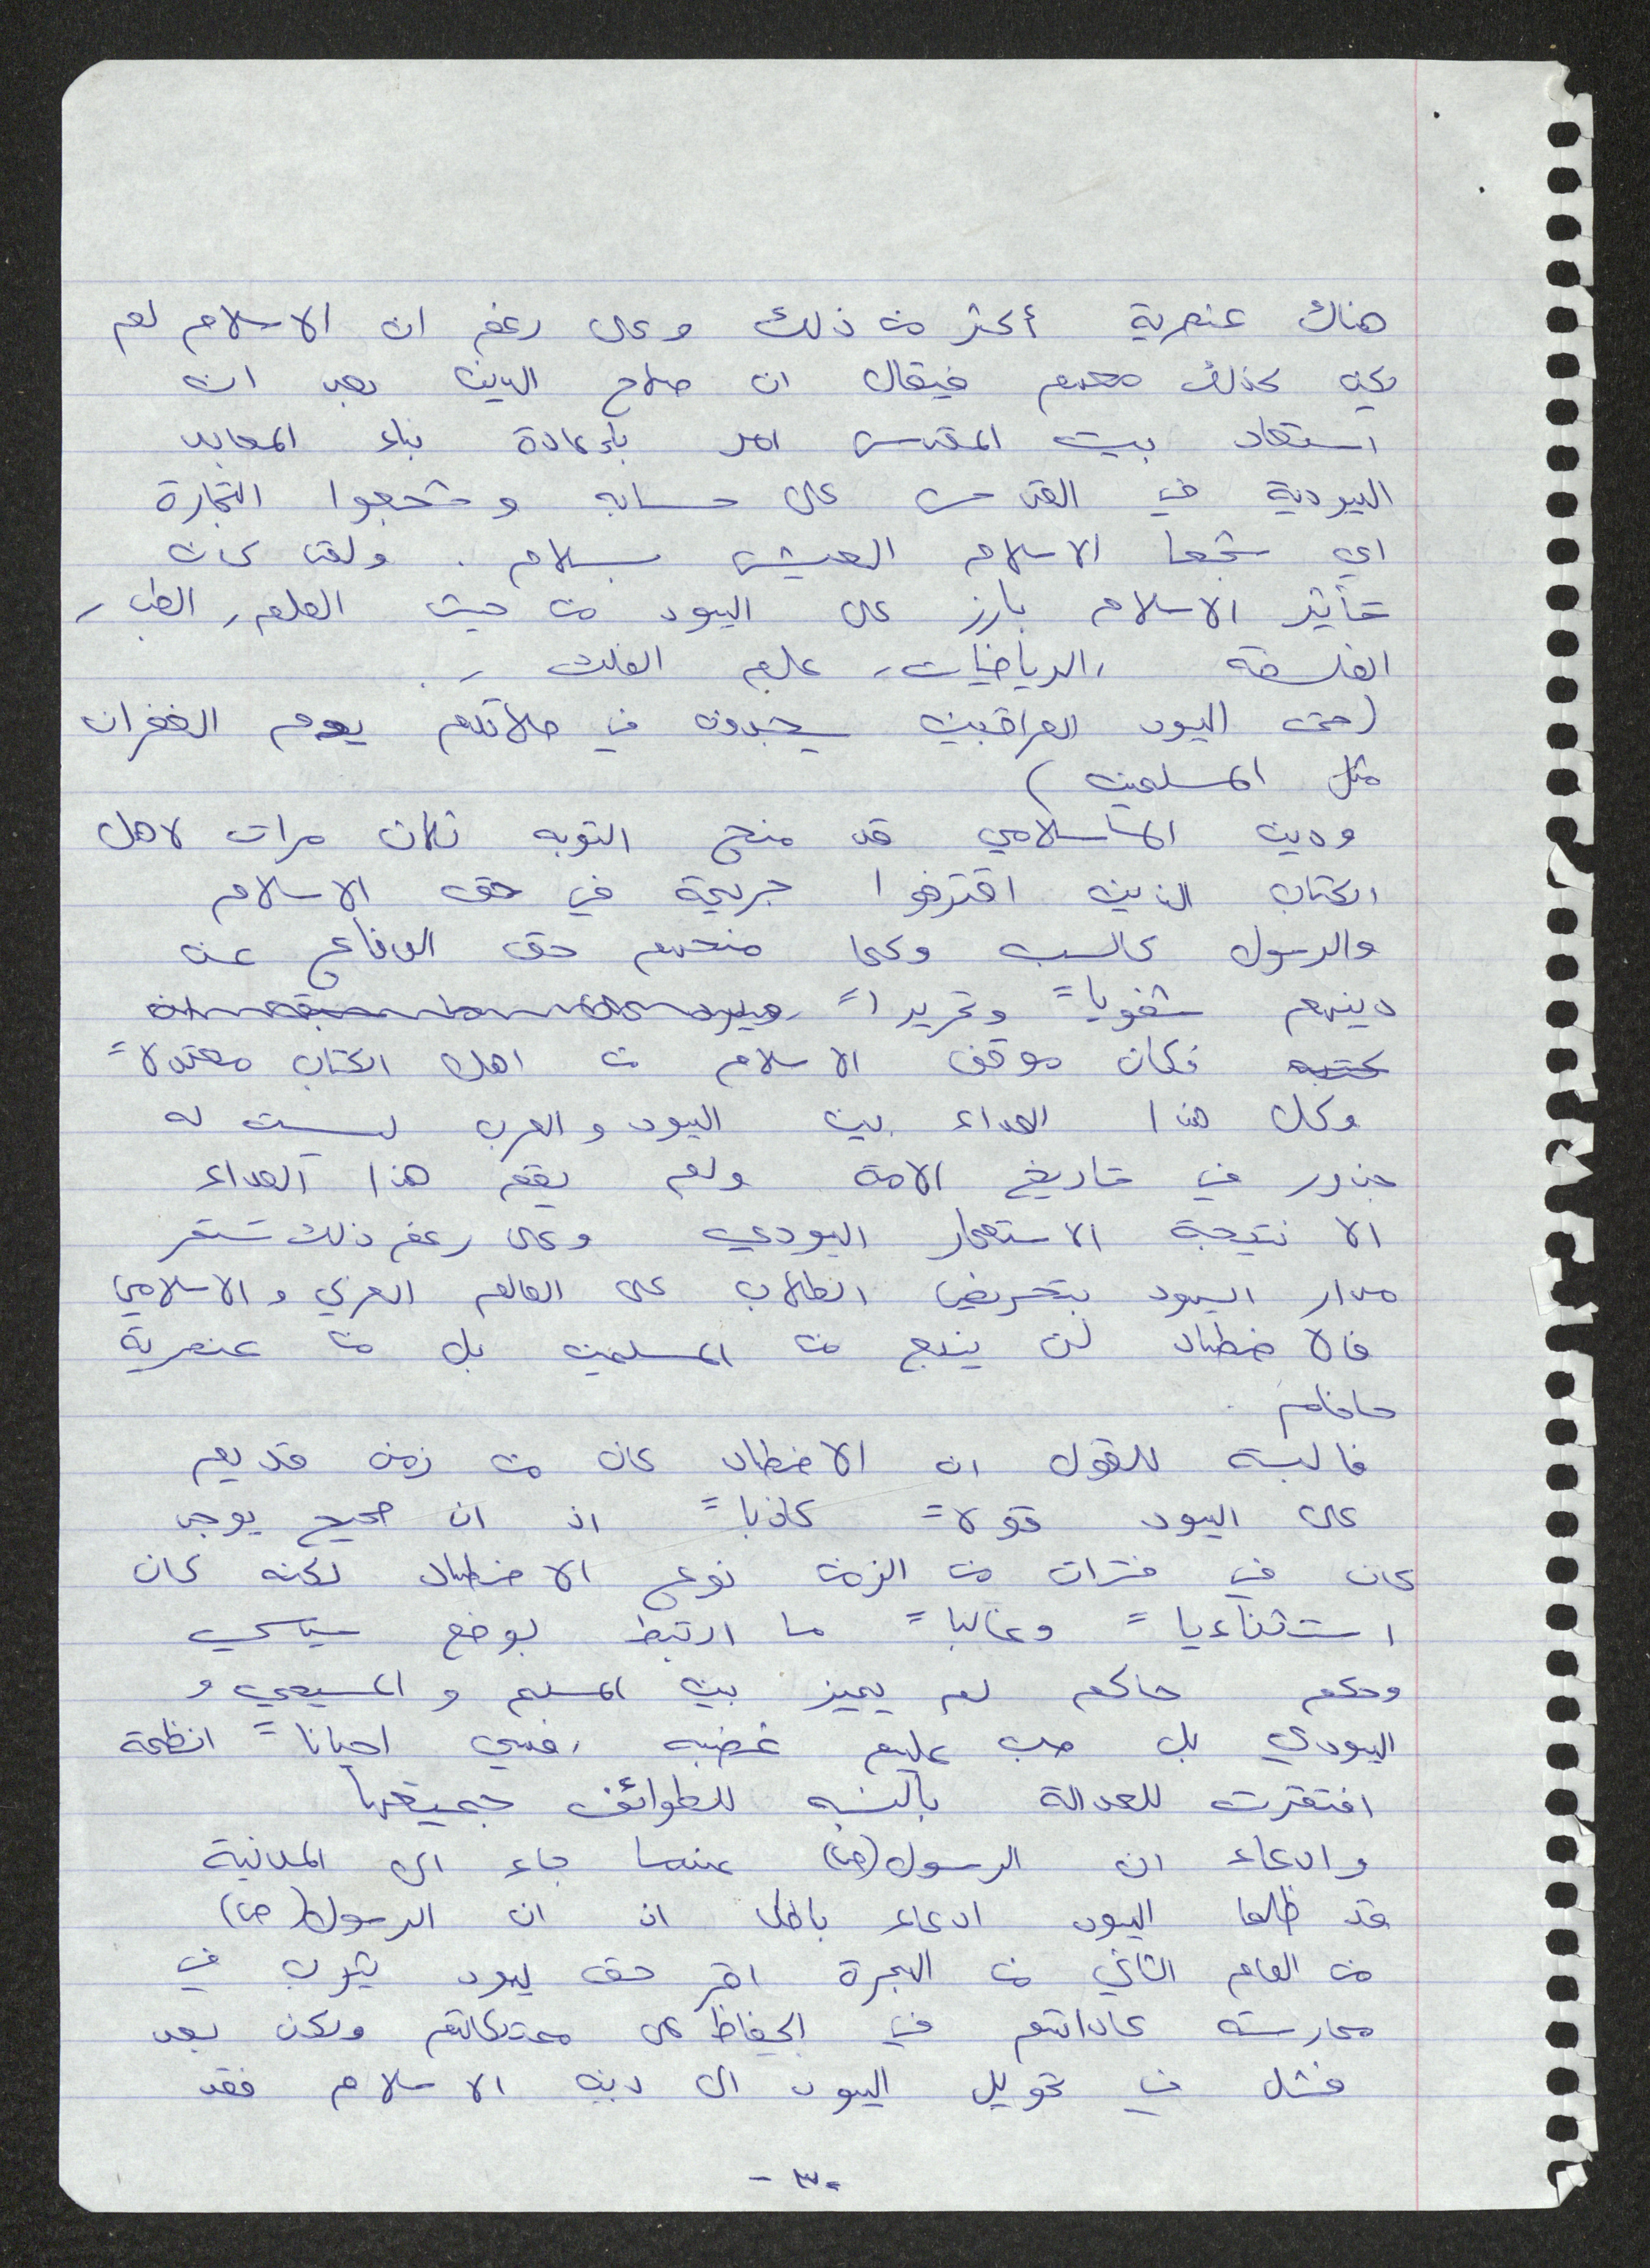 هناك عنصرية أكثر من ذلك وعلى رغم ان الاسلام لم
يكن كذلك معهم فيقال ان صلاح الدين بعد ان
استعاد بيت المقدس امر باعادة بناء المعابد
اليهودية في القدس على حسابه وشجعوا التجارة
اي شجعا الاسلام العيش بسلام . ولقد كان
تأثير الاسلام بارز على اليهود من حيث العلم, الطب,
الفلسفة ,الرياضيات, علم الفلك ,.
(حتى اليهود العراقيين يسجدون في صلاتهم يوم الغفران
مثل المسلمين)
ودين الاسلامي قد منح التوبه ثلاث مرات لاهل
الكتاب الذين اقترفوا جريمة في حق الاسلام
والرسول كالسب وكما منحهم حق الدفاع عن
دينهم شفوياً وتحريراً
فكان موقف الاسلام من اهل الكتاب معتدلاً
وكل هذا العداء بين اليهود والعرب ليست له
جذور في تاريخ الامة ولم يقم هذا العداء
الا نتيجة الاستعمار اليهودي وعلى رغم ذلك تستمر
مدار اليهود بتحريض الطلاب على العالم العربي والاسلامي
فالاضطهاد لن ينبع من المسلمين بل من عنصرية
حاخامهم.
فالبسة للقول ان الاضطهاد كان من زمن قديم
على اليهود قولاً كاذباً اذ ان صحيح يوجد
كان في فترات من الزمن نوع الاضطهاد لكنه كان
استثناءياً وغالباً ما ارتبط بوضع سياسي
وحكم حاكم لم يميز بين المسلم والمسيحي و
اليهودي بل صب عليهم غضبه ,فهي احياناً انظمة
افتقرت للعدالة بالنسبه للطوائف جميعها
وادعاء ان الرسول(ص) عندما جاء الى المدنية
قد ظلما اليهود ادعاء باطل اذ ان الرسول(ص)
من العام الثاني من الهجرة اقر حق ليهود يثرب في
ممارسته عاداتهم في الحفاظ على ممتلكاتهم ولكن بعد
فشل في تحويل اليهود الى دين الاسلام فقد
-٣-